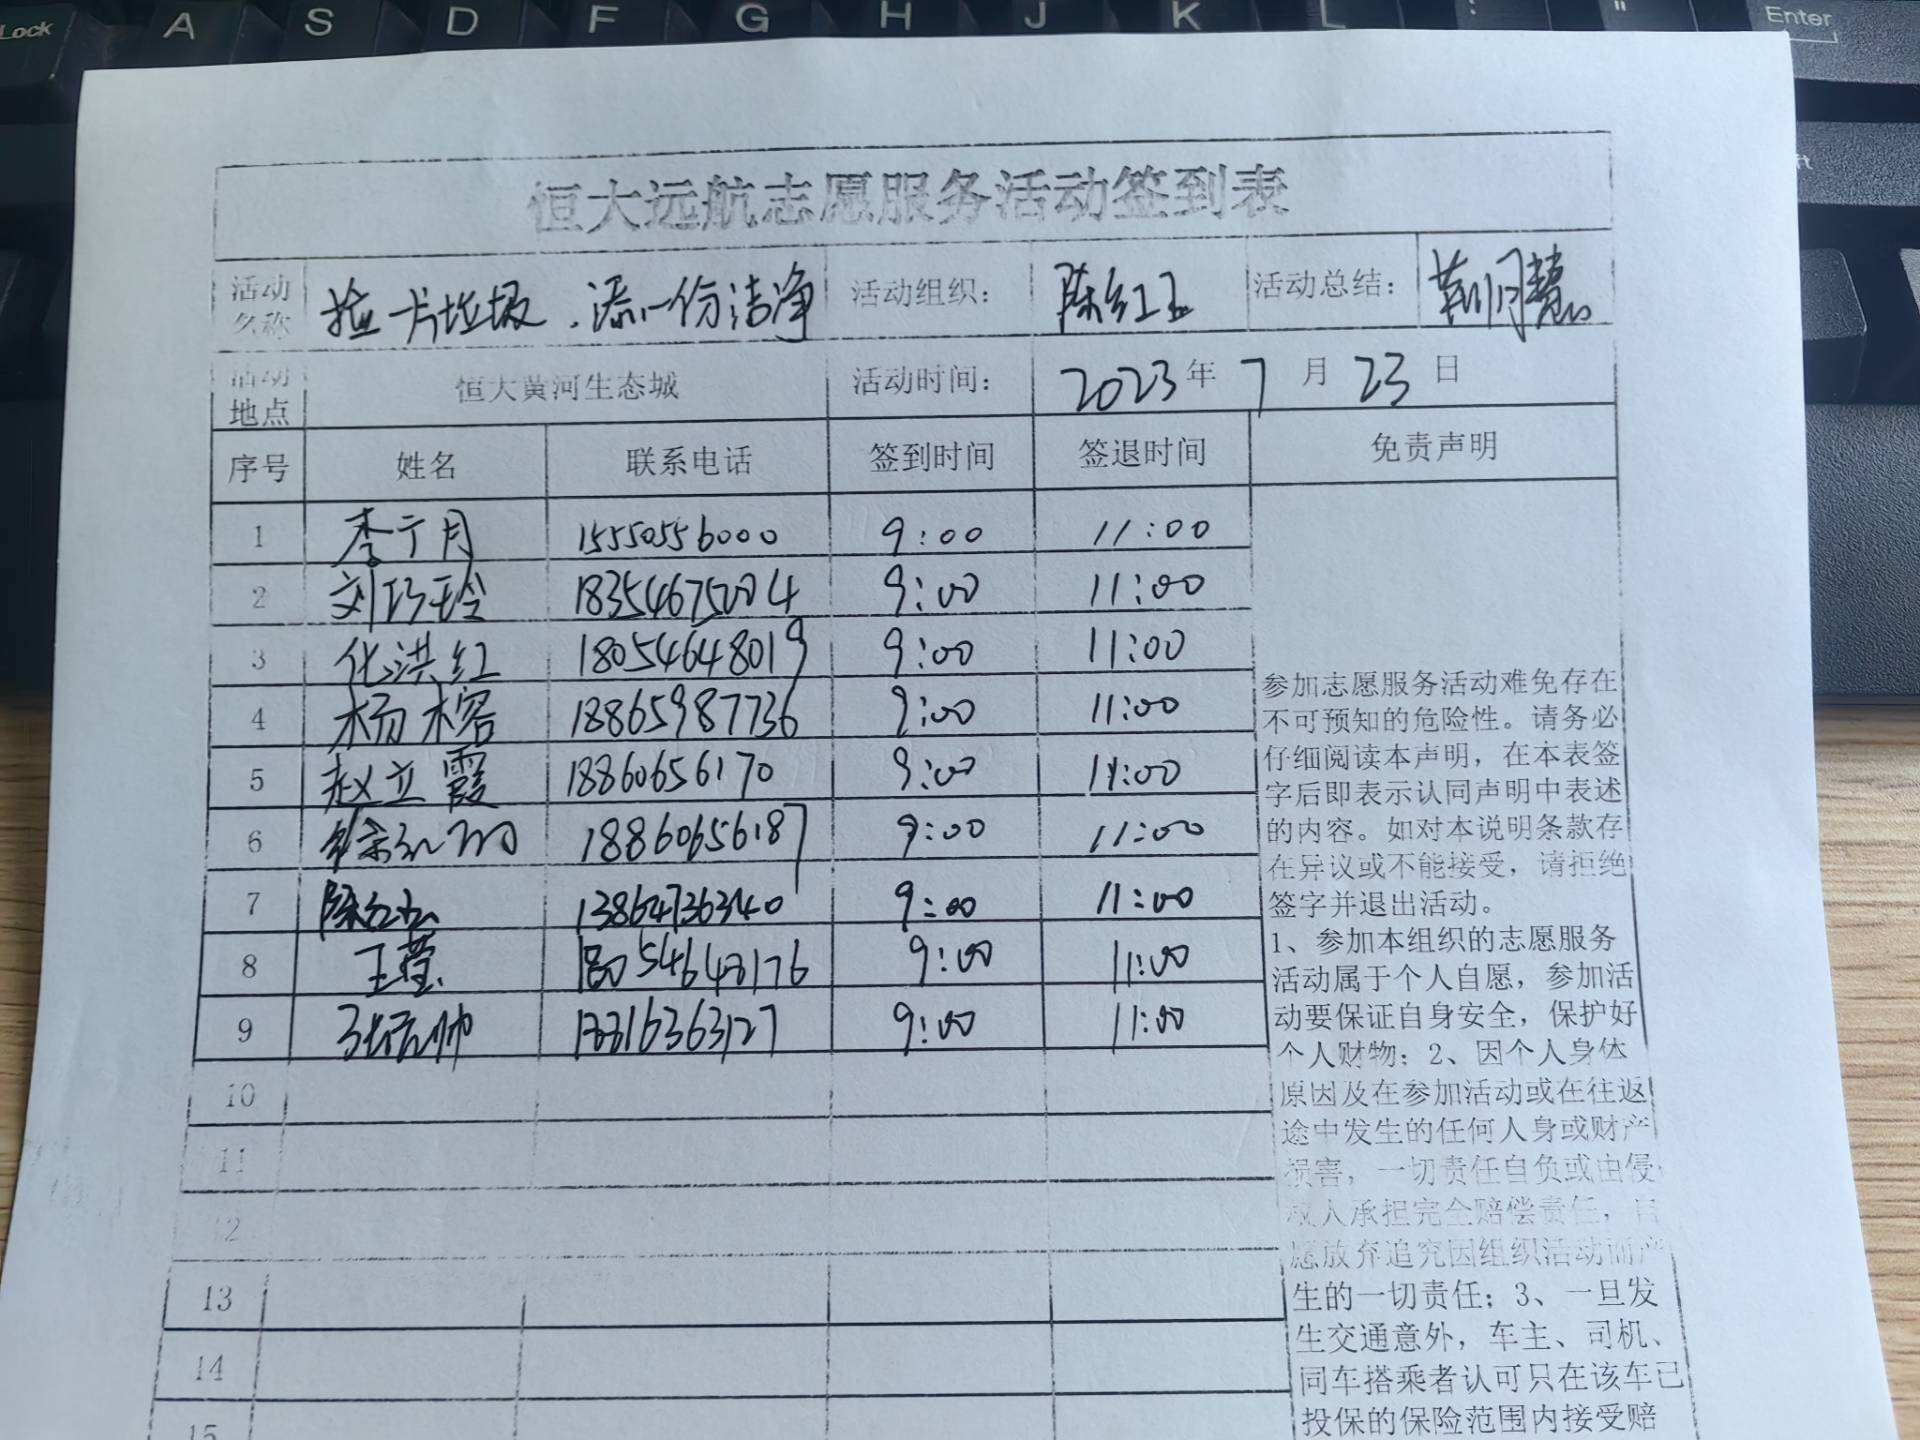 Lock A S D F G H J K L : " Enter
恒大远航志愿服务活动签到表
活动名称 捡一片垃圾、添一份洁净 活动组织： 陈红玉 活动总结： 慧
活动地点 恒大黄河生态城 活动时间： 2023年7月23日
序号 姓名 联系电话 签到时间 签退时间 免责声明
1 李宁月 15550556000 9:00 11:00
2 刘巧玲 18354675004 9:00 11:00
3 化洪红 18054648019 9:00 11:00
4 杨榕 18865987736 9:00 11:00
5 赵立霞 18860656170 9:00 11:00
6 18860656187 9:00 11:00
7 陈红玉 13864736340 9:00 11:00
8 王莹 18054648176 9:00 11:00
9 张 帅 9:00 11:00
10
11
12
13
14
15
参加志愿服务活动难免存在
不可预知的危险性。请务必
仔细阅读本声明，在本表签
字后即表示认同声明中表述
的内容。如对本说明条款存
在异议或不能接受，请拒绝
签字并退出活动。
1、参加本组织的志愿服务
活动属于个人自愿，参加活
动要保证自身安全，保护好
个人财物；2、因个人身体
原因及在参加活动或在往返
途中发生的任何人身或财产
损害，一切责任自负或由侵
权人承担完全赔偿责任，自
愿放弃追究因组织活动而产
生的一切责任；3、一旦发
生交通意外，车主、司机、
同车搭乘者认可只在该车已
投保的保险范围内接受赔